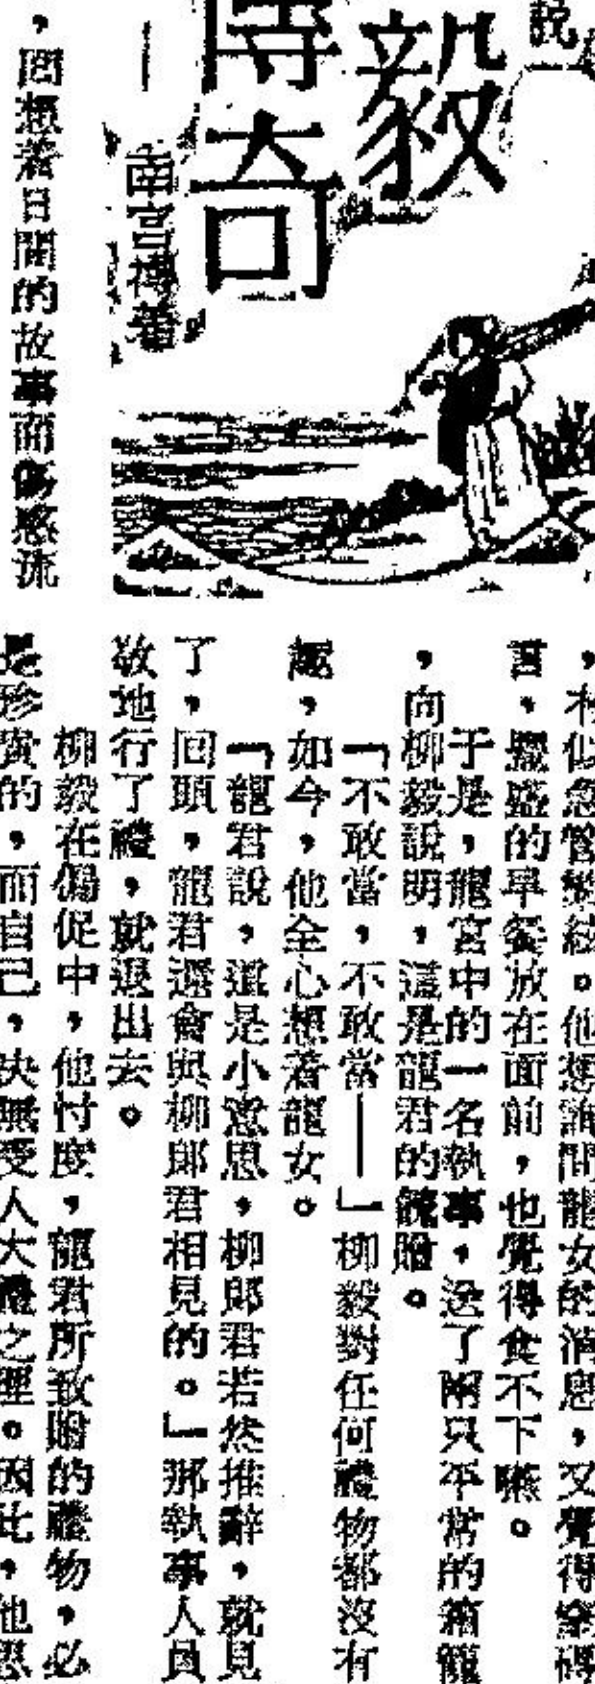 說
毅
傳奇
南宮搏著
，回想着日間的故事而傷感流
言，豐盛的早餐放在面前，也覺得食不下嚥。
于是，龍宮中的一名執事，送了兩只平常的箱籠
，向柳毅說明，這是龍君的餽贈。
「不敢當，不敢當——」柳毅對任何禮物都沒有
趣，如今，他全心想着龍女。
「龍君說，這是小意思，柳郎君若然推辭，就見
了，回頭，龍君還會與柳郎君相見的。」那執事人員
敬地行了禮，就退出去。
柳毅在侷促中，他忖度，龍君所致贈的禮物，必
是珍貴的，而自己，決無受人大禮之理。因此，他思